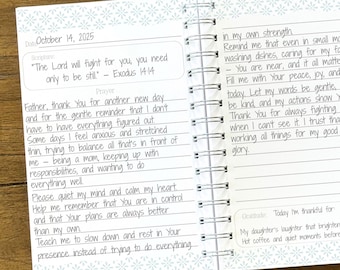 Date October 14, 2025
Scripture
"The Lord will fight for you, you need
only to be still." – Exodus 14:14
Prayer
Father, thank You for another new day
and for the gentle reminder that I don't
have to have everything figured out.
Some days I feel anxious and stretched
thin, trying to balance all that's in front of
me – being a mom, keeping up with
responsibilities, and wanting to do
everything well.
Please quiet my mind and calm my heart.
Help me remember that You are in control
and that Your plans are always better
than my own.
Teach me to slow down and rest in Your
presence instead of trying to do everything
in my own strength.
Remind me that even in small mo
washing dishes, caring for my fa
– You are near, and it all matte
Fill me with Your peace, joy, and
today. Let my words be gentle,
be kind, and my actions show Y
Thank You for always fighting
when I can't see it. I trust that
working all things for my good
glory.
Gratitude Today I'm thankful for:
My daughter's laughter that brighten
Hot coffee and quiet moments before